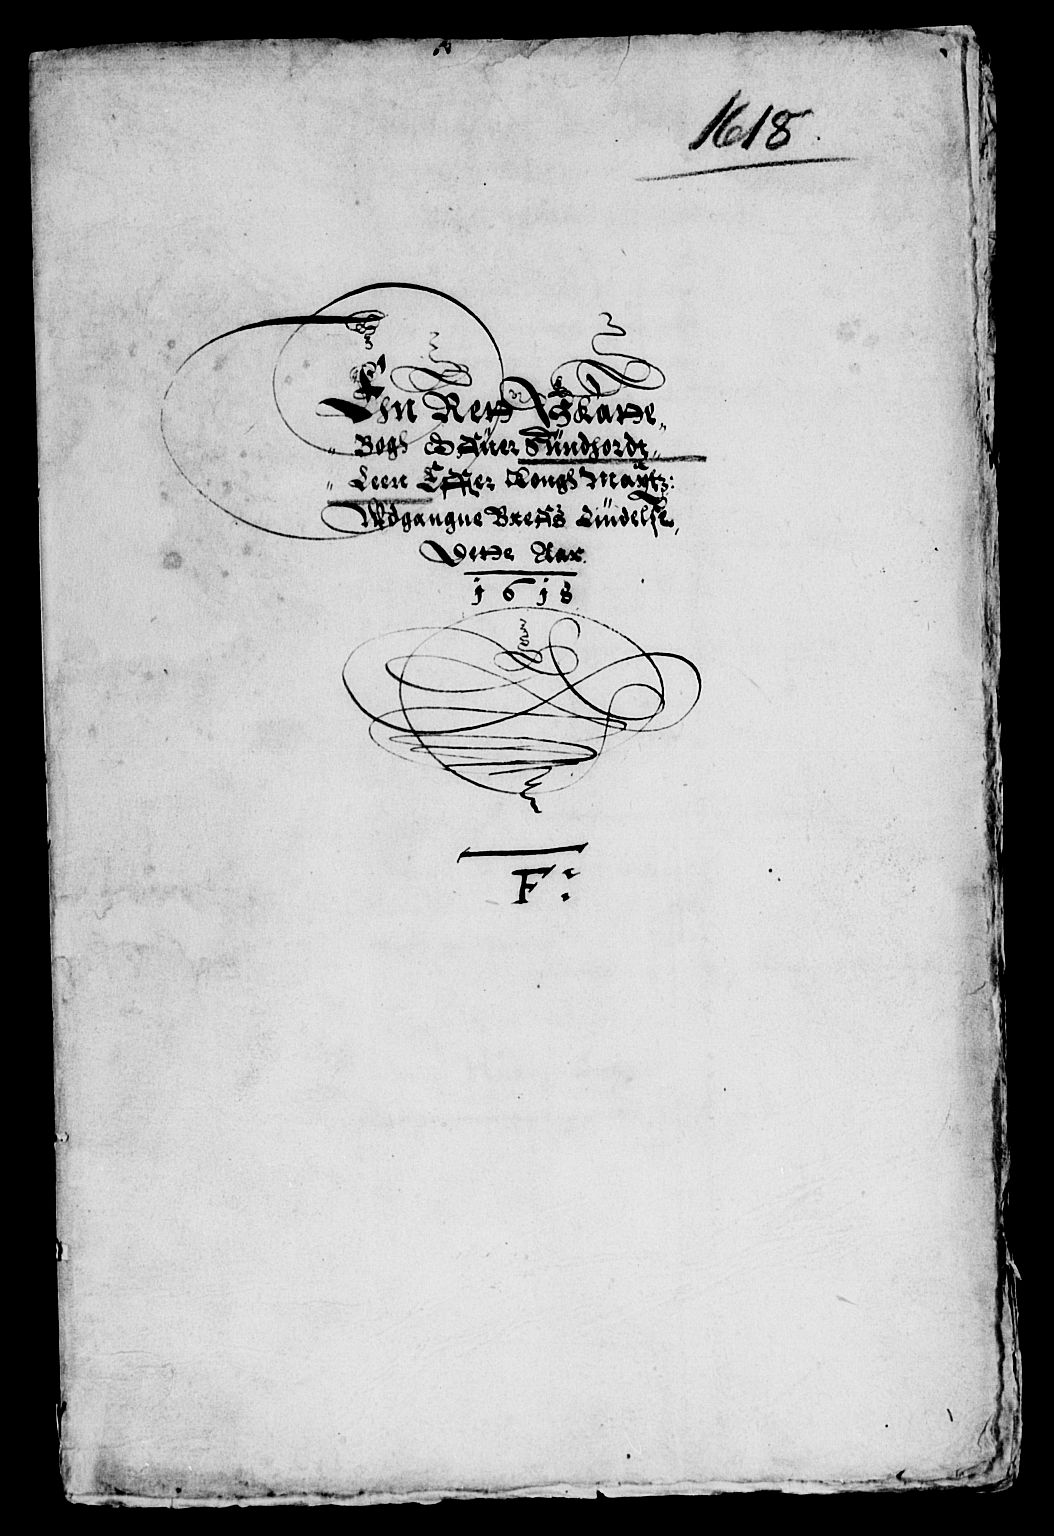 1618.
Ehn Rett Skatte„
„ Bogh Offuer Sundfordt„
„ Leen Effter Kongh Maÿtz:
Wdgangne Breffs Liudelse,
Dette Aar.
1618
F: